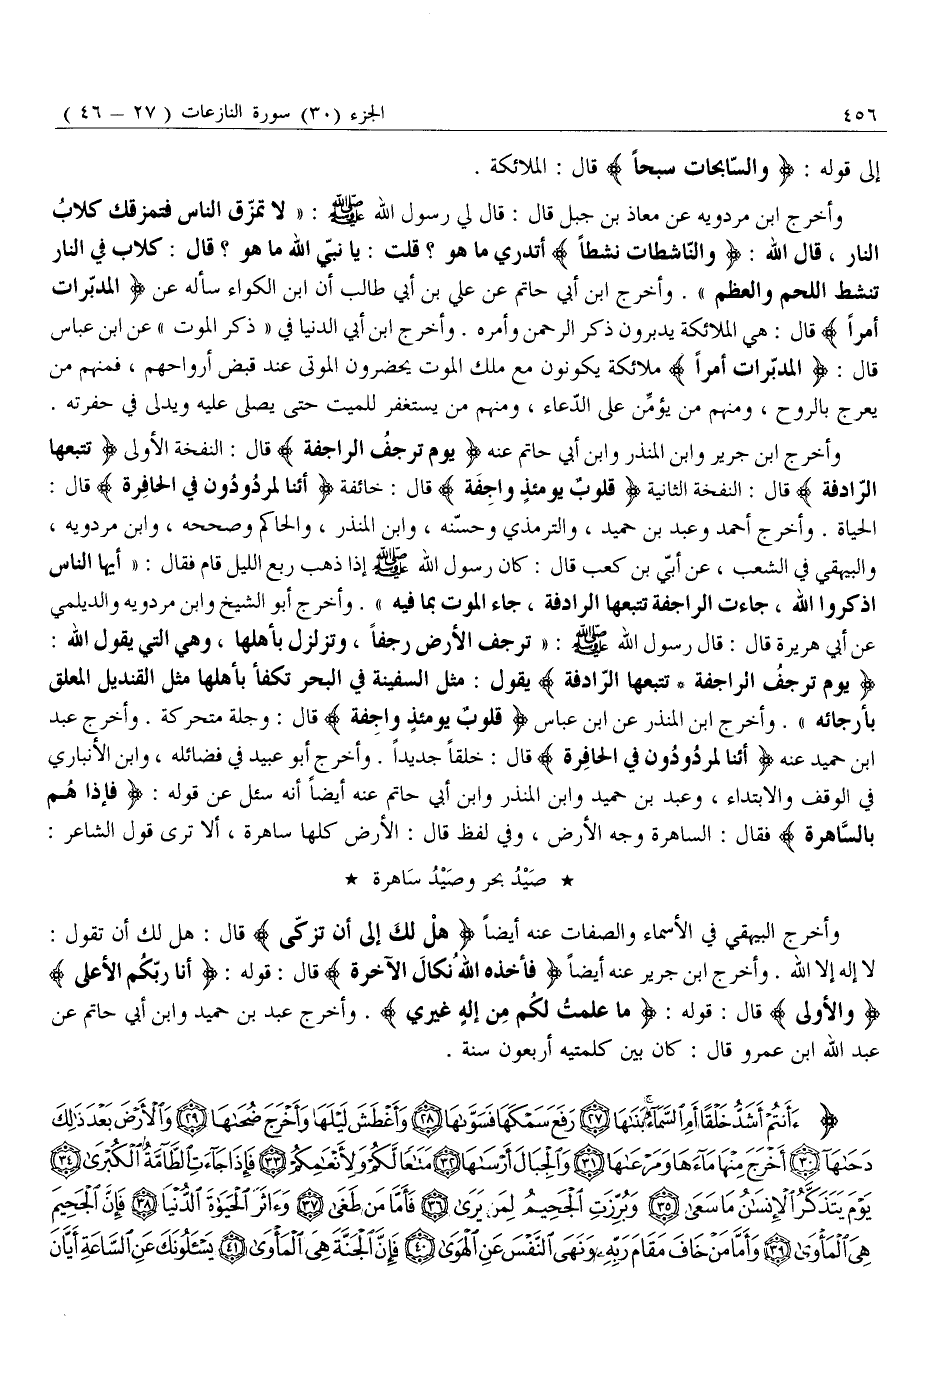 ٤٥٦ الجزء (٣٠) سورة النازعات ( ٢٧ – ٤٦ )
إلى قوله : ﴿ والسّابحات سبحاً ﴾ قال : الملائكة .
وأخرج ابن مردويه عن معاذ بن جبل قال : قال لي رسول الله ﷺ : « لا تمزّق الناس فتمزقك كلابُ
النار ، قال الله : ﴿ والنّاشطات نشطاً ﴾ أتدري ما هو ؟ قلت : يا نبيّ الله ما هو ؟ قال : كلاب في النار
تنشط اللحم والعظم » . وأخرج ابن أبي حاتم عن علي بن أبي طالب أن ابن الكواء سأله عن ﴿ المدبّرات
أمراً ﴾ قال : هي الملائكة يدبرون ذكر الرحمن وأمره . وأخرج ابن أبي الدنيا في « ذكر الموت » عن ابن عباس
قال : ﴿ المدبّرات أمراً ﴾ ملائكة يكونون مع ملك الموت يحضرون الموتى عند قبض أرواحهم ، فمنهم من
يعرج بالروح ، ومنهم من يؤمِّن على الدّعاء ، ومنهم من يستغفر للميت حتى يصلى عليه ويدلى في حفرته .
وأخرج ابن جرير وابن المنذر وابن أبي حاتم عنه ﴿ يوم ترجفُ الراجفة ﴾ قال : النفخة الأولى ﴿ تتبعها
الرّادفة ﴾ قال : النفخة الثانية ﴿ قلوبٌ يومئذٍ واجِفَة ﴾ قال : خائفة ﴿ أئنا لمردُودُون في الحافِرة ﴾ قال :
الحياة . وأخرج أحمد وعبد بن حميد ، والترمذي وحسّنه ، وابن المنذر ، والحاكم وصححه ، وابن مردويه ،
والبيهقي في الشعب ، عن أبيّ بن كعب قال : كان رسول الله ﷺ إذا ذهب ربع الليل قام فقال : « أيها الناس
اذكروا الله ، جاءت الراجفة تتبعها الرادفة ، جاء الموت بما فيه » . وأخرج أبو الشيخ وابن مردويه والديلمي
عن أبي هريرة قال : قال رسول الله ﷺ : « ترجف الأرض رجفاً ، وتزلزل بأهلها ، وهي التي يقول الله :
﴿ يوم ترجفُ الراجفة * تتبعها الرّادفة ﴾ يقول : مثل السفينة في البحر تكفأ بأهلها مثل القنديل المعلق
بأرجائه » . وأخرج ابن المنذر عن ابن عباس ﴿ قلوبٌ يومئذٍ واجِفة ﴾ قال : وجلة متحركة . وأخرج عبد
ابن حميد عنه ﴿ أئنا لمردُودُون في الحافِرة ﴾ قال : خلقاً جديداً . وأخرج أبو عبيد في فضائله ، وابن الأنباري
في الوقف والابتداء ، وعبد بن حميد وابن المنذر وابن أبي حاتم عنه أيضاً أنه سئل عن قوله : ﴿ فإذا هُم
بالسَّاهرة ﴾ فقال : الساهرة وجه الأرض ، وفي لفظ قال : الأرض كلها ساهرة ، ألا ترى قول الشاعر :
★ صَيْدُ بحر وصَيْدُ سَاهرة ★
وأخرج البيهقي في الأسماء والصفات عنه أيضاً ﴿ هلْ لكَ إلى أن تزكّى ﴾ قال : هل لك أن تقول :
لا إله إلا الله . وأخرج ابن جرير عنه أيضاً ﴿ فأخذه اللهُ نكالَ الآخرة ﴾ قال : قوله : ﴿ أنا ربّكُم الأعلى ﴾
﴿ والأولى ﴾ قال : قوله : ﴿ ما علمتُ لكُم مِن إلهٍ غيري ﴾ . وأخرج عبد بن حميد وابن أبي حاتم عن
عبد الله ابن عمرو قال : كان بين كلمتيه أربعون سنة .
﴿ ءَأَنتُمْ أَشَدُّ خَلْقًا أَمِ ٱلسَّمَآءُ ۚ بَنَىٰهَا ٢٧ رَفَعَ سَمْكَهَا فَسَوَّىٰهَا ٢٨ وَأَغْطَشَ لَيْلَهَا وَأَخْرَجَ ضُحَىٰهَا ٢٩ وَٱلْأَرْضَ بَعْدَ ذَٰلِكَ
دَحَىٰهَآ ٣٠ أَخْرَجَ مِنْهَا مَآءَهَا وَمَرْعَىٰهَا ٣١ وَٱلْجِبَالَ أَرْسَىٰهَا ٣٢ مَتَٰعًا لَّكُمْ وَلِأَنْعَٰمِكُمْ ٣٣ فَإِذَا جَآءَتِ ٱلطَّآمَّةُ ٱلْكُبْرَىٰ ٣٤
يَوْمَ يَتَذَكَّرُ ٱلْإِنسَٰنُ مَا سَعَىٰ ٣٥ وَبُرِّزَتِ ٱلْجَحِيمُ لِمَن يَرَىٰ ٣٦ فَأَمَّا مَن طَغَىٰ ٣٧ وَءَاثَرَ ٱلْحَيَوٰةَ ٱلدُّنْيَا ٣٨ فَإِنَّ ٱلْجَحِيمَ
هِىَ ٱلْمَأْوَىٰ ٣٩ وَأَمَّا مَنْ خَافَ مَقَامَ رَبِّهِۦ وَنَهَى ٱلنَّفْسَ عَنِ ٱلْهَوَىٰ ٤٠ فَإِنَّ ٱلْجَنَّةَ هِىَ ٱلْمَأْوَىٰ ٤١ يَسْـَٔلُونَكَ عَنِ ٱلسَّاعَةِ أَيَّانَ